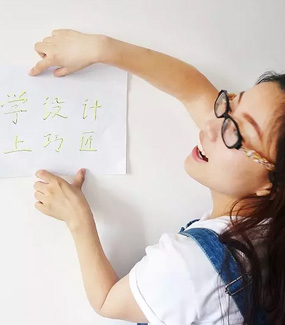 学设计
上巧匠